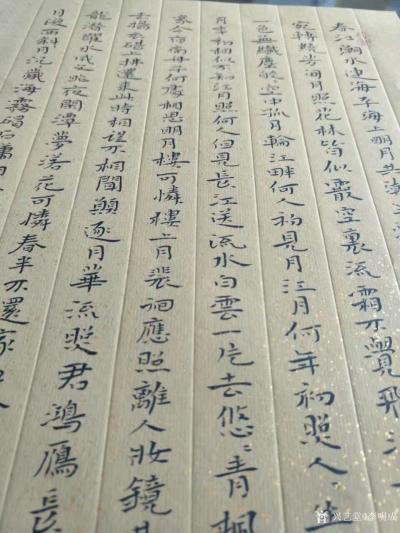 春江潮水連海平海上明月共潮生
宛轉繞芳甸月照花林皆似霰空裏流霜不覺飛汀
一色無纖塵皎空中孤月輪江畔何人初見月江月何年初照人〻生
月年〻相似不知江月照何人但見長江送流水白雲一片去悠〻青楓
家今夜扁舟子何處相思明月樓可憐樓上月裴回應照離人妝鏡
去擣衣砧上拂還來此時相望不相聞願逐月華流照君鴻雁長
龍潛躍水成文昨夜閑潭夢落花可憐春半不還家
月復西斜〻月沉〻藏海霧碣石瀟